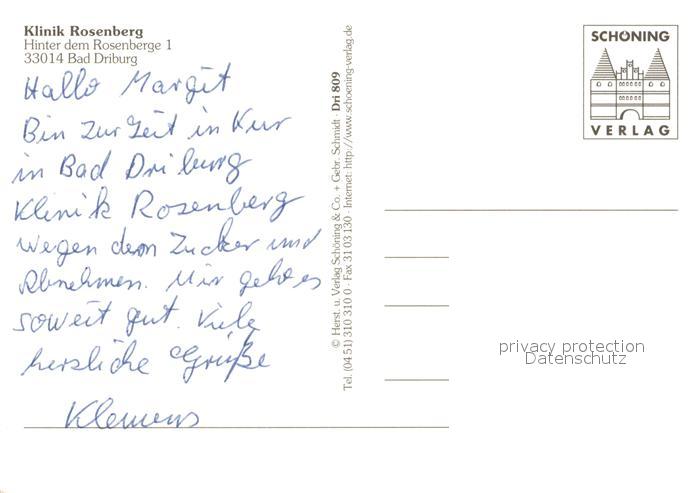 Klinik Rosenberg
Hinter dem Rosenberge 1
33014 Bad Driburg
Hallo Margit
Bin zur Zeit in Kur
in Bad Driburg
Klinik Rosenberg
wegen dem Zucker und
Abnehmen. Mir geht es
soweit gut. Viele
herzliche Grüße
Klemens
© Herst. u. Verlag Schöning & Co. + Gebr. Schmidt · Dri 809
Tel. (04 51) 310 310 0 · Fax 31 03 130 · Internet: http://www.schoening-verlag.de
SCHÖNING
VERLAG
privacy protection
Datenschutz